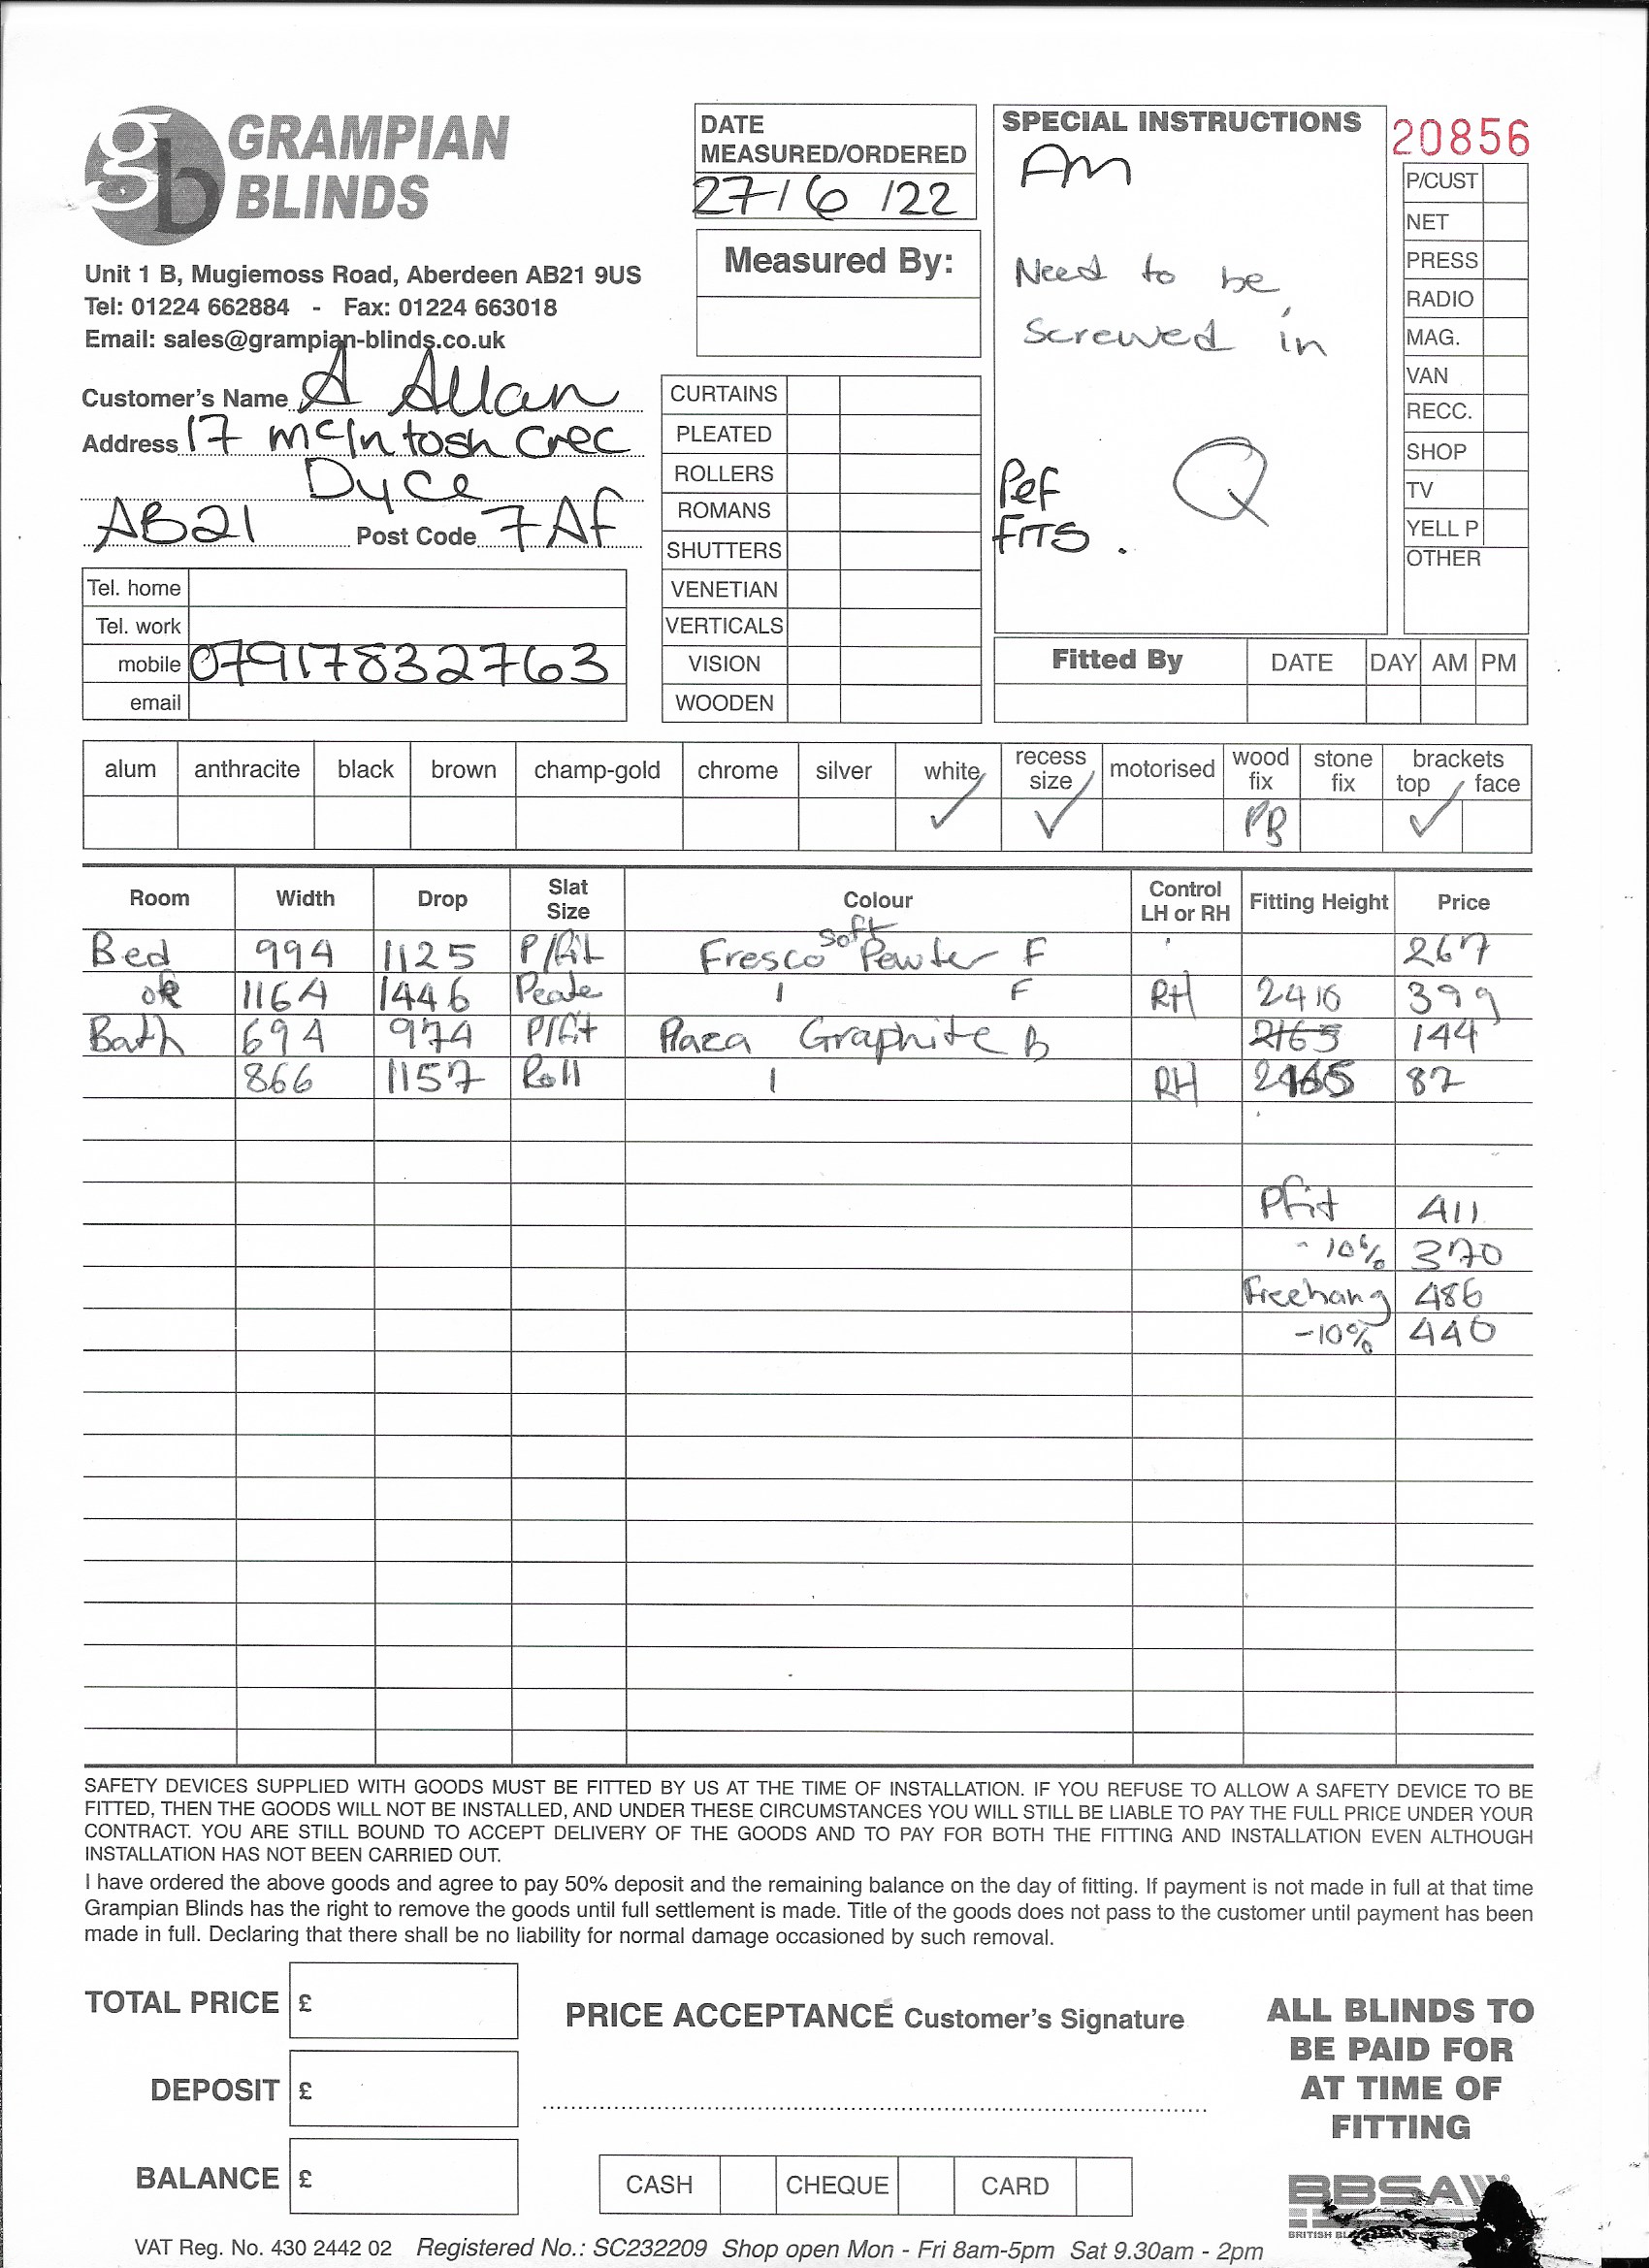 GRAMPIAN
BLINDS
Unit 1 B, Mugiemoss Road, Aberdeen AB21 9US
Tel: 01224 662884 - Fax: 01224 663018
Email: sales@grampian-blinds.co.uk
Customer's Name A Allan
Address 17 McIntosh Crec
Dyce
AB21 Post Code 7AF
Tel. home
Tel. work
mobile 07917832763
email
DATE
MEASURED/ORDERED
27/6/22
Measured By:
CURTAINS
PLEATED
ROLLERS
ROMANS
SHUTTERS
VENETIAN
VERTICALS
VISION
WOODEN
SPECIAL INSTRUCTIONS
AM
Need to be
screwed in
Q
Pef
FITS.
20856
P/CUST
NET
PRESS
RADIO
MAG.
VAN
RECC.
SHOP
TV
YELL P
OTHER
Fitted By DATE DAY AM PM
alum anthracite black brown champ-gold chrome silver white recess size motorised wood fix stone fix brackets top face
✓ ✓ PB ✓
Room Width Drop Slat Size Colour Control LH or RH Fitting Height Price
Bed 994 1125 P/fit Fresco Soft Pewter F 267
or 1164 1446 F RH 2416 399
Bath 694 974 P/fit Plaza Graphite B 2165 144
866 1157 Roll RH 2165 87
Pfit 411
-10% 370
Freehang 486
-10% 440
SAFETY DEVICES SUPPLIED WITH GOODS MUST BE FITTED BY US AT THE TIME OF INSTALLATION. IF YOU REFUSE TO ALLOW A SAFETY DEVICE TO BE
FITTED, THEN THE GOODS WILL NOT BE INSTALLED, AND UNDER THESE CIRCUMSTANCES YOU WILL STILL BE LIABLE TO PAY THE FULL PRICE UNDER YOUR
CONTRACT. YOU ARE STILL BOUND TO ACCEPT DELIVERY OF THE GOODS AND TO PAY FOR BOTH THE FITTING AND INSTALLATION EVEN ALTHOUGH
INSTALLATION HAS NOT BEEN CARRIED OUT.
I have ordered the above goods and agree to pay 50% deposit and the remaining balance on the day of fitting. If payment is not made in full at that time
Grampian Blinds has the right to remove the goods until full settlement is made. Title of the goods does not pass to the customer until payment has been
made in full. Declaring that there shall be no liability for normal damage occasioned by such removal.
TOTAL PRICE £
DEPOSIT £
BALANCE £
PRICE ACCEPTANCE Customer's Signature
CASH CHEQUE CARD
ALL BLINDS TO
BE PAID FOR
AT TIME OF
FITTING
BBSA
BRITISH
VAT Reg. No. 430 2442 02 Registered No.: SC232209 Shop open Mon - Fri 8am-5pm Sat 9.30am - 2pm